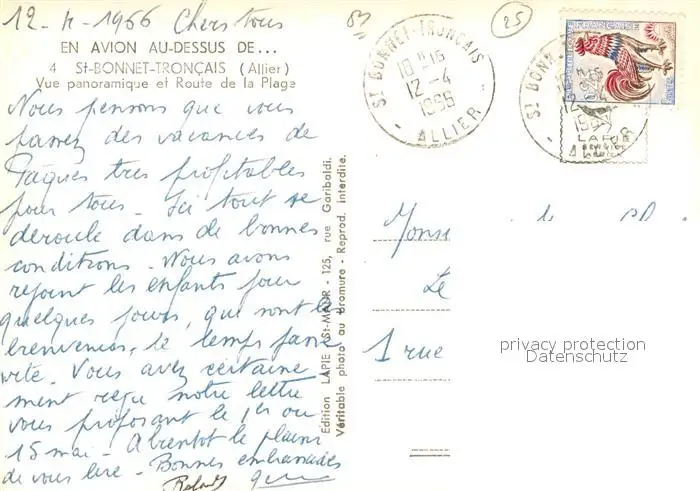 12-4-1966 Chers tous
EN AVION AU-DESSUS DE...
4 St-BONNET-TRONÇAIS (Allier)
Vue panoramique et Route de la Plage
Nous pensons que vous
passez des vacances de
Pâques très profitables
pour tous. Ici tout se
déroule dans de bonnes
conditions. Nous avons
rejoint les enfants pour
quelques jours, qui sont les
bienvenus, le temps passe
vite. Vous avez certaine
ment reçu notre lettre
vous proposant le 1er ou
15 mai - A bientôt le plaisir
de vous lire - Bonnes embrassades
Roland
Edition LAPIE - St-MAUR - 125, rue Garibaldi.
Véritable photo au bromure - Reprod. interdite.
25
ST BONNET-TRONÇAIS
18 H 15
12-4
1966
ALLIER
LAPIE
SERVICE
AERIEN
Le
1 rue
privacy protection
Datenschutz